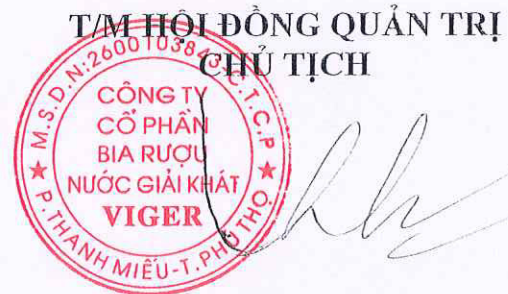 T/M HỘI ĐỒNG QUẢN TRỊ
CHỦ TỊCH
M.S.D.N:2600103843-C.T.C.P
CÔNG TY
CỔ PHẦN
BIA RƯỢU
NƯỚC GIẢI KHÁT
VIGER
P.THANH MIẾU-T.PHÚ THỌ